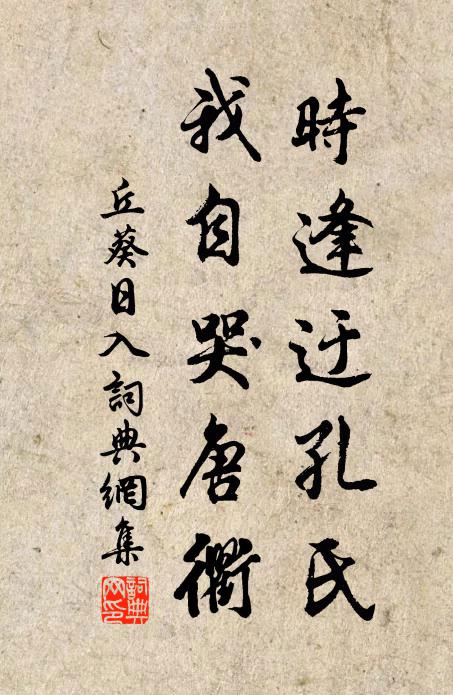 時逢迂孔氏
我自哭唐衢
丘葵日入詞典網集
詞典網印